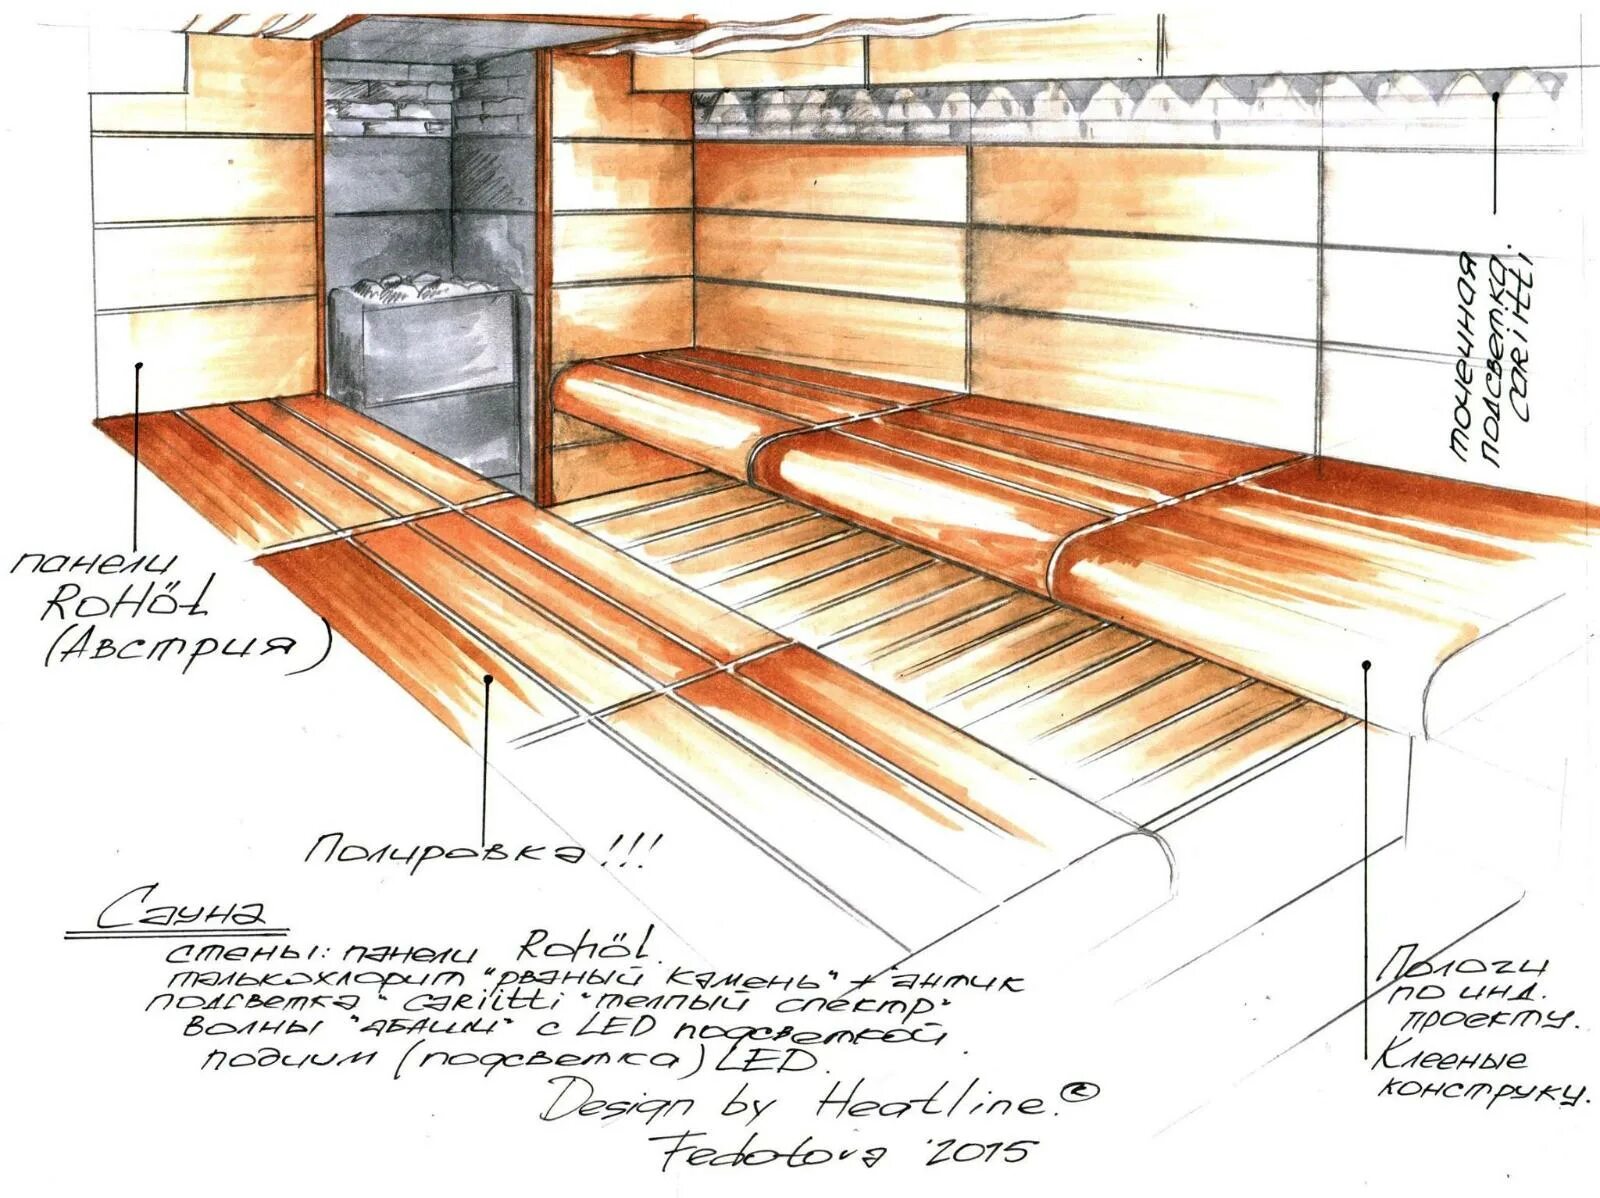 точечная
подсветка
cariitti.
панели
RoHöL
(Австрия)
Полировка!!!
Сауна
стены: панели Rohöl.
талькохлорит "рваный камень" + "антик
подсветка "cariitti "теплый спектр"
волны "абаши" с LED подсветкой.
подиум (подсветка) LED.
Design by Heatline.®
Fedotova '2015
Пологи
по инд.
проекту.
Клееные
конструкц.